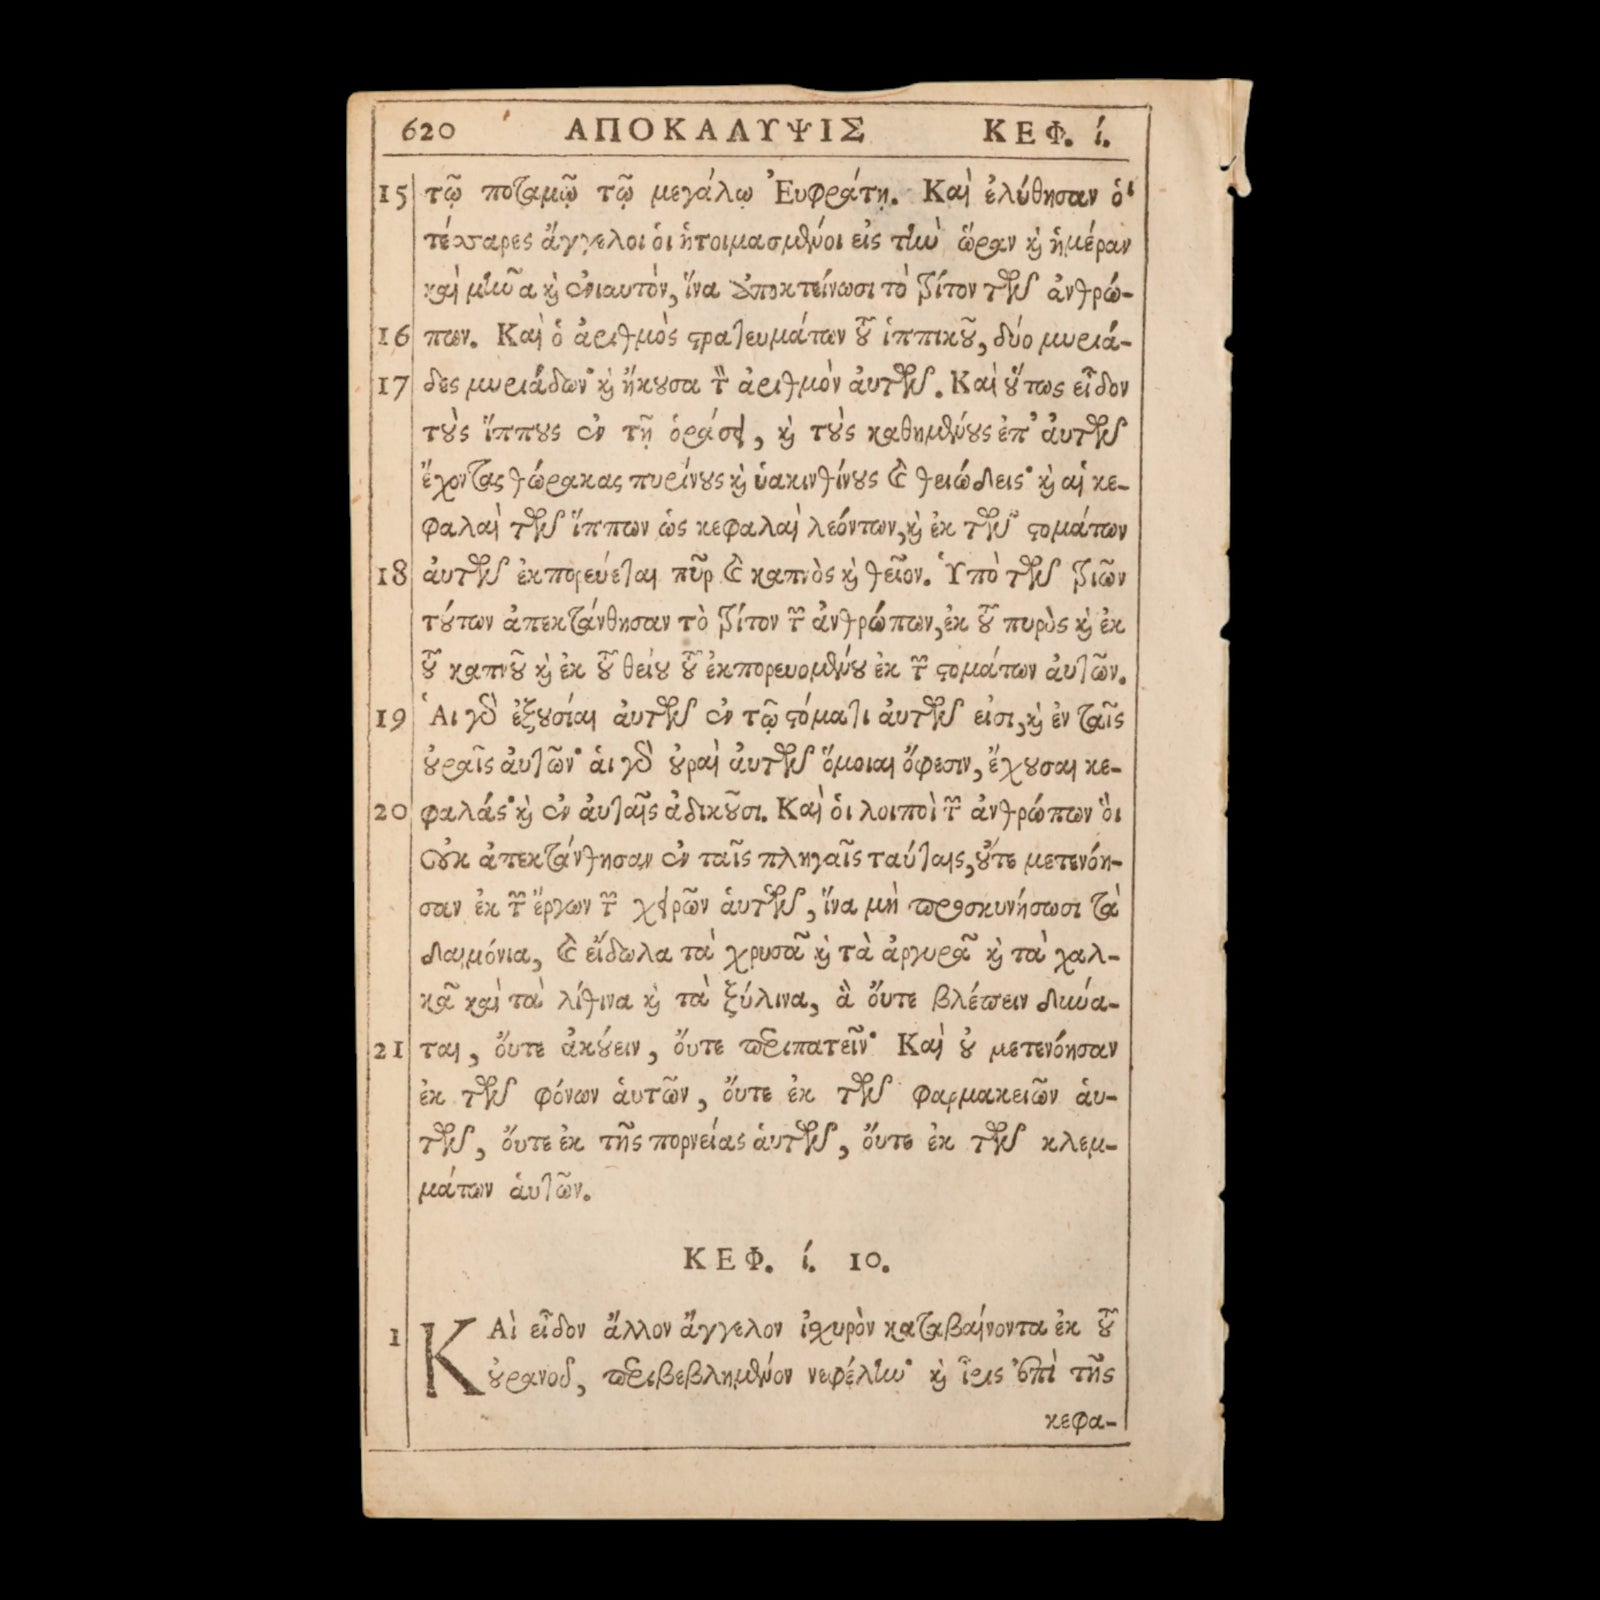 620 ΑΠΟΚΑΛΥΨΙΣ ΚΕΦ. ί.
15 τῷ ποταμῷ τῷ μεγάλῳ Ἐυφράτῃ. Καὶ ἐλύθησαν ὁι
τέσσαρες ἄγγελοι ὁι ἡτοιμασμένοι εἰς τὴν ὥραν καὶ ἡμέραν
καὶ μῆνα καὶ ἐνιαυτὸν, ἵνα ἀποκτείνωσι τὸ τρίτον τῶν ἀνθρώ-
16 πων. Καὶ ὁ ἀριθμὸς στρατευμάτων τοῦ ἱππικοῦ, δύο μυριά-
17 δες μυριάδων· καὶ ἤκουσα τὸν ἀριθμὸν ἀυτῶν. Καὶ οὕτως εἶδον
τοὺς ἵππους ἐν τῇ ὁράσει, καὶ τοὺς καθημένους ἐπ' ἀυτῶν
ἔχοντας θώρακας πυρίνους καὶ ὑακινθίνους καὶ θειώδεις· καὶ αἱ κε-
φαλαὶ τῶν ἵππων ὡς κεφαλαὶ λεόντων, καὶ ἐκ τῶν στομάτων
18 ἀυτῶν ἐκπορεύεται πῦρ καὶ καπνὸς καὶ θεῖον. Ὑπὸ τῶν τριῶν
τούτων ἀπεκτάνθησαν τὸ τρίτον τῶν ἀνθρώπων, ἐκ τοῦ πυρὸς καὶ ἐκ
τοῦ καπνοῦ καὶ ἐκ τοῦ θείου τοῦ ἐκπορευομένου ἐκ τῶν στομάτων ἀυτῶν.
19 Ἁι γὰρ ἐξουσίαι ἀυτῶν ἐν τῷ στόματι ἀυτῶν εἰσι, καὶ ἐν ταῖς
οὐραῖς ἀυτῶν· ἁι γὰρ οὐραὶ ἀυτῶν ὅμοιαι ὄφεσιν, ἔχουσαι κε-
20 φαλάς· καὶ ἐν ἀυταῖς ἀδικοῦσι. Καὶ ὁι λοιποὶ τῶν ἀνθρώπων ὃι
οὐκ ἀπεκτάνθησαν ἐν ταῖς πληγαῖς ταύταις, οὔτε μετενόη-
σαν ἐκ τῶν ἔργων τῶν χειρῶν ἁυτῶν, ἵνα μὴ προσκυνήσωσι τὰ
δαιμόνια, καὶ εἴδωλα τὰ χρυσᾶ καὶ τὰ ἀργυρᾶ καὶ τὰ χαλ-
κᾶ καὶ τὰ λίθινα καὶ τὰ ξύλινα, ἃ ὄυτε βλέπειν δύνα-
21 ται, ὄυτε ἀκούειν, ὄυτε περιπατεῖν· Καὶ οὐ μετενόησαν
ἐκ τῶν φόνων ἁυτῶν, ὄυτε ἐκ τῶν φαρμακειῶν ἁυ-
τῶν, ὄυτε ἐκ τῆς πορνείας ἁυτῶν, ὄυτε ἐκ τῶν κλεμ-
μάτων ἁυτῶν.
ΚΕΦ. ί. 10.
1 ΚΑὶ εἶδον ἄλλον ἄγγελον ἰσχυρὸν καταβαίνοντα ἐκ τοῦ
οὐρανοῦ, περιβεβλημένον νεφέλην· καὶ ἶρις ἐπὶ τῆς
κεφα-